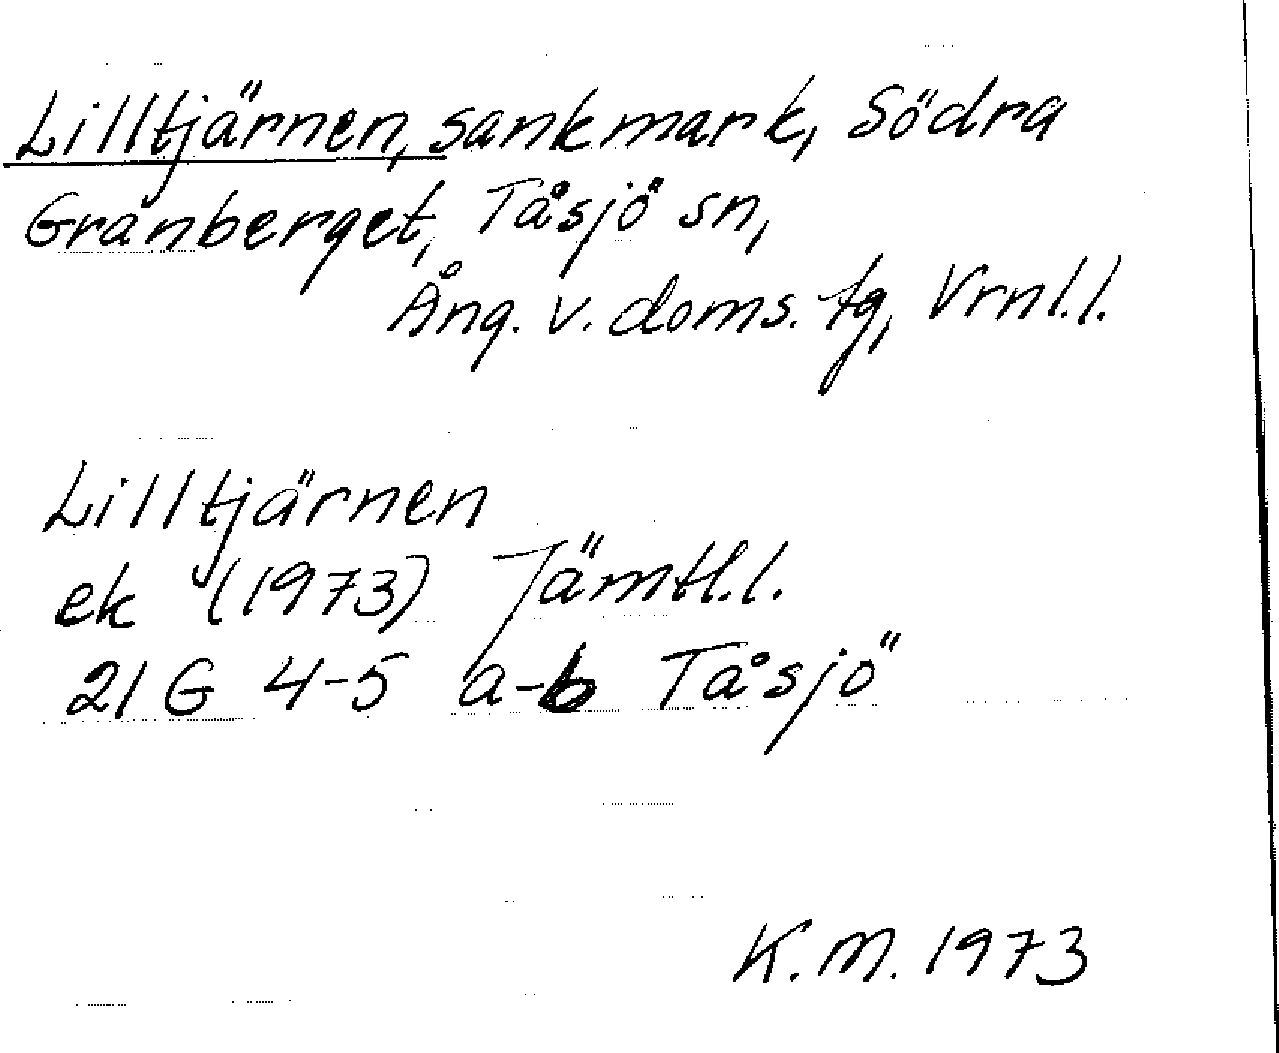 Lilltjärnen, sankmark, Södra
Granberget, Tåsjö sn,
Ång. v. doms. tg, Vrnl.l.
Lilltjärnen
ek (1973) Jämtl.l.
21 G 4-5 a-b Tåsjö
K.M. 1973